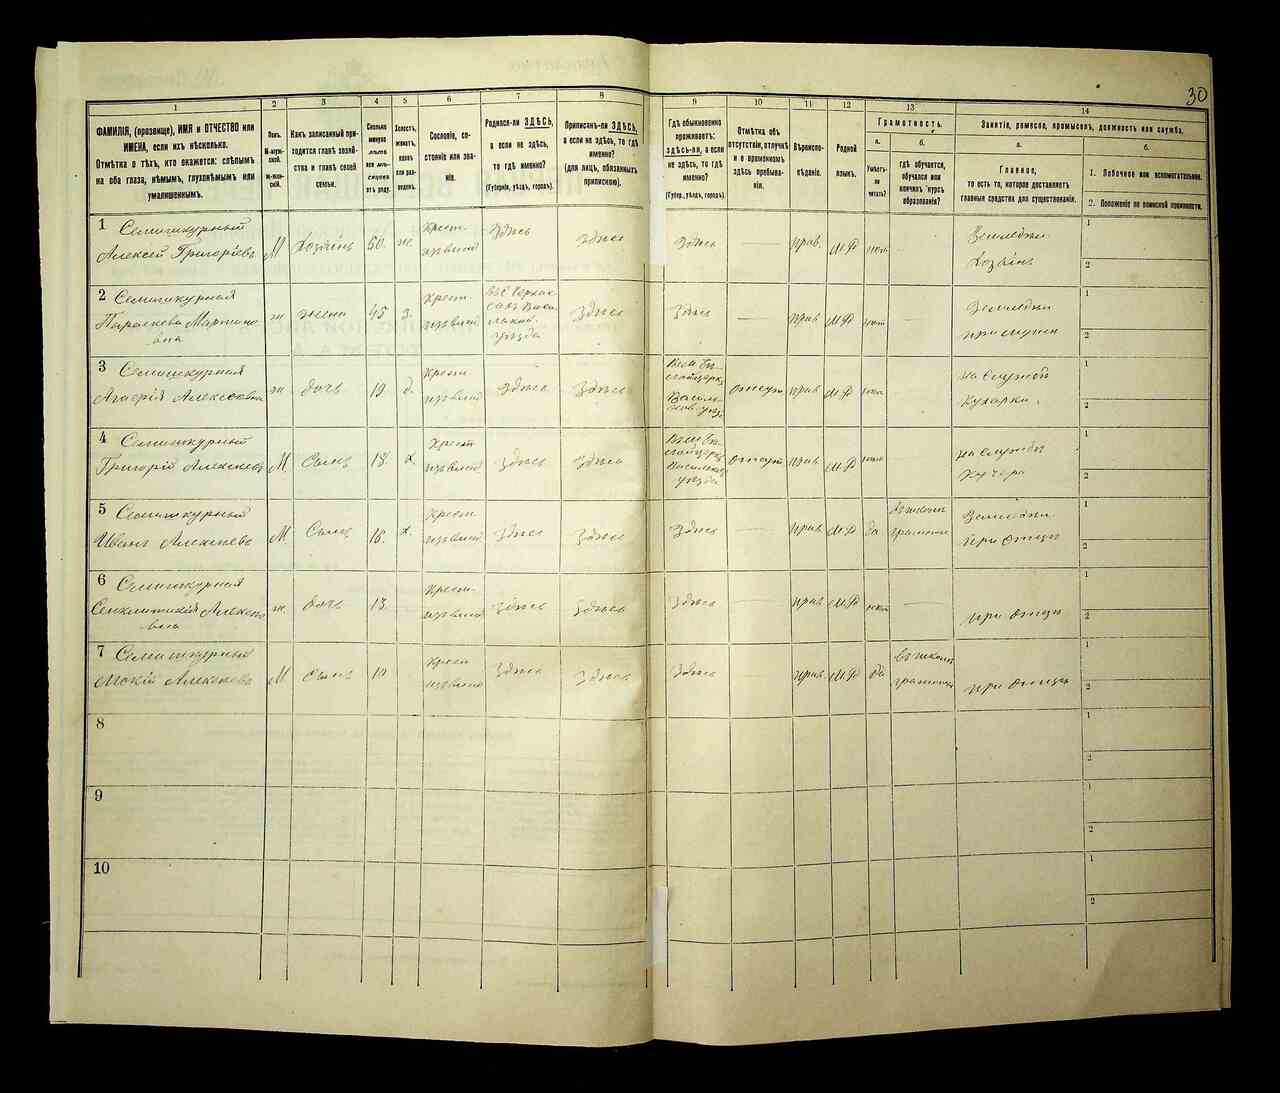 30
1
2
3
4
5
6
7
8
9
10
11
12
13
14
ФАМИЛІЯ, (прозвище), ИМЯ и ОТЧЕСТВО или
ИМЕНА, если ихъ нѣсколько.
Отмѣтка о тѣхъ, кто окажется: слѣпымъ
на оба глаза, нѣмымъ, глухонѣмымъ или
умалишеннымъ.
Полъ.
М-муж-
ской.
Ж-жен-
скій.
Какъ записанный при-
ходится главѣ хозяй-
ства и главѣ своей
семьи.
Сколько
минуло
лѣтъ
отъ роду.
Холостъ,
женатъ,
вдовъ
или раз-
веденъ.
Сословіе, со-
стояніе или зва-
ніе.
Родился-ли ЗДѢСЬ,
а если не здѣсь,
то гдѣ именно?
(Губернія, уѣздъ, городъ).
Приписанъ-ли ЗДѢСЬ,
а если не здѣсь, то гдѣ
именно?
(для лицъ, обязанныхъ
припискою).
Гдѣ обыкновенно
проживаетъ:
ЗДѢСЬ-ЛИ, а если
не здѣсь, то гдѣ
именно?
(Губер., уѣздъ, городъ).
Отмѣтка объ
отсутствіи, отлучкѣ
и о временномъ
здѣсь пребыва-
ніи.
Вѣроиспо-
вѣданіе.
Родной
языкъ.
Грамотность.
а.
б.
Умѣетъ-
ли
читать?
гдѣ обучается,
обучался или
кончилъ курсъ
образованія?
Занятіе, ремесло, промыселъ, должность или служба.
а.
б.
Главное,
то есть то, которое доставляетъ
главныя средства для существованія.
1. Побочное или вспомогательное.
2. Положеніе по воинской повинности.
1 Семишкурный
Алексѣй Григоріевъ М Хозяинъ 50 ж. Крест- Здѣсь Здѣсь Здѣсь — прав. М.Р нѣтъ Земледѣл. Хозяинъ 1 2
2 Семишкурная
Параскева Мартино
вна ж жена 45 з. Крест- Здѣсь Здѣсь — прав М.Р нѣтъ — Земледѣл при мужѣ 1 2
3 Семишкурная
Алексѣевна ж дочь 19 д. Крест- Здѣсь Здѣсь Василь уѣзд прав М.Р нѣтъ — на службѣ Кухарка 1 2
4 Семишкурный
Григорій Алексѣевъ М Сынъ 18. х. Крест Здѣсь Здѣсь уѣзда прав М.Р нѣтъ на службѣ Кучера 1 2
5 Семишкурный
Иванъ Алексѣевъ М Сынъ 16. х. Крест- Здѣсь Здѣсь Здѣсь — прав М.Р да въ школѣ грамотѣ Земледѣл при Отцѣ 1 2
6 Семишкурная
Алексѣе
вна ж. дочь 13. Крест- Здѣсь Здѣсь Здѣсь — прав М.Р нѣт — при Отцѣ 1 2
7 Семишкурный
Мокій Алексѣевъ М Сынъ 10 Крест Здѣсь Здѣсь Здѣсь — прав. М.Р да въ школѣ грамотѣ при Отцѣ 1 2
8 1 2
9 1 2
10 1 2